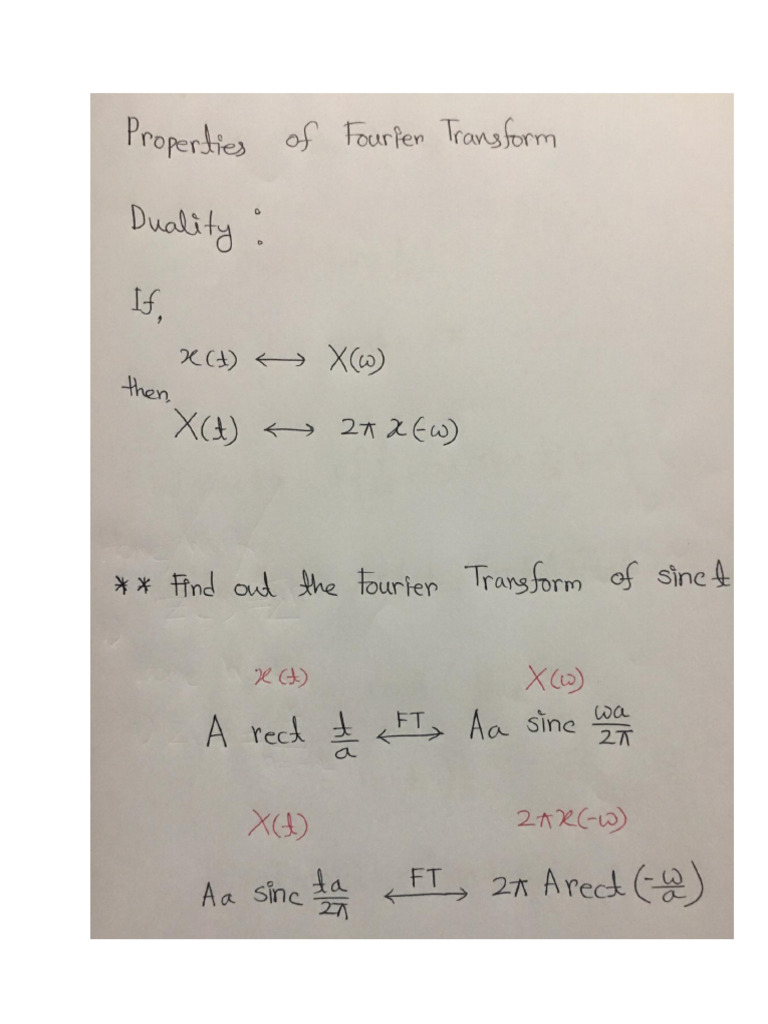 Properties of Fourier Transform
Duality :
If,
x(t) ⟷ X(ω)
then,
X(t) ⟷ 2π x(-ω)
** Find out the Fourier Transform of sinc t
x(t) X(ω)
A rect t/a ⟷FT Aa sinc ωa/2π
X(t) 2πx(-ω)
Aa sinc ta/2π ⟷FT 2π A rect (-ω/a)